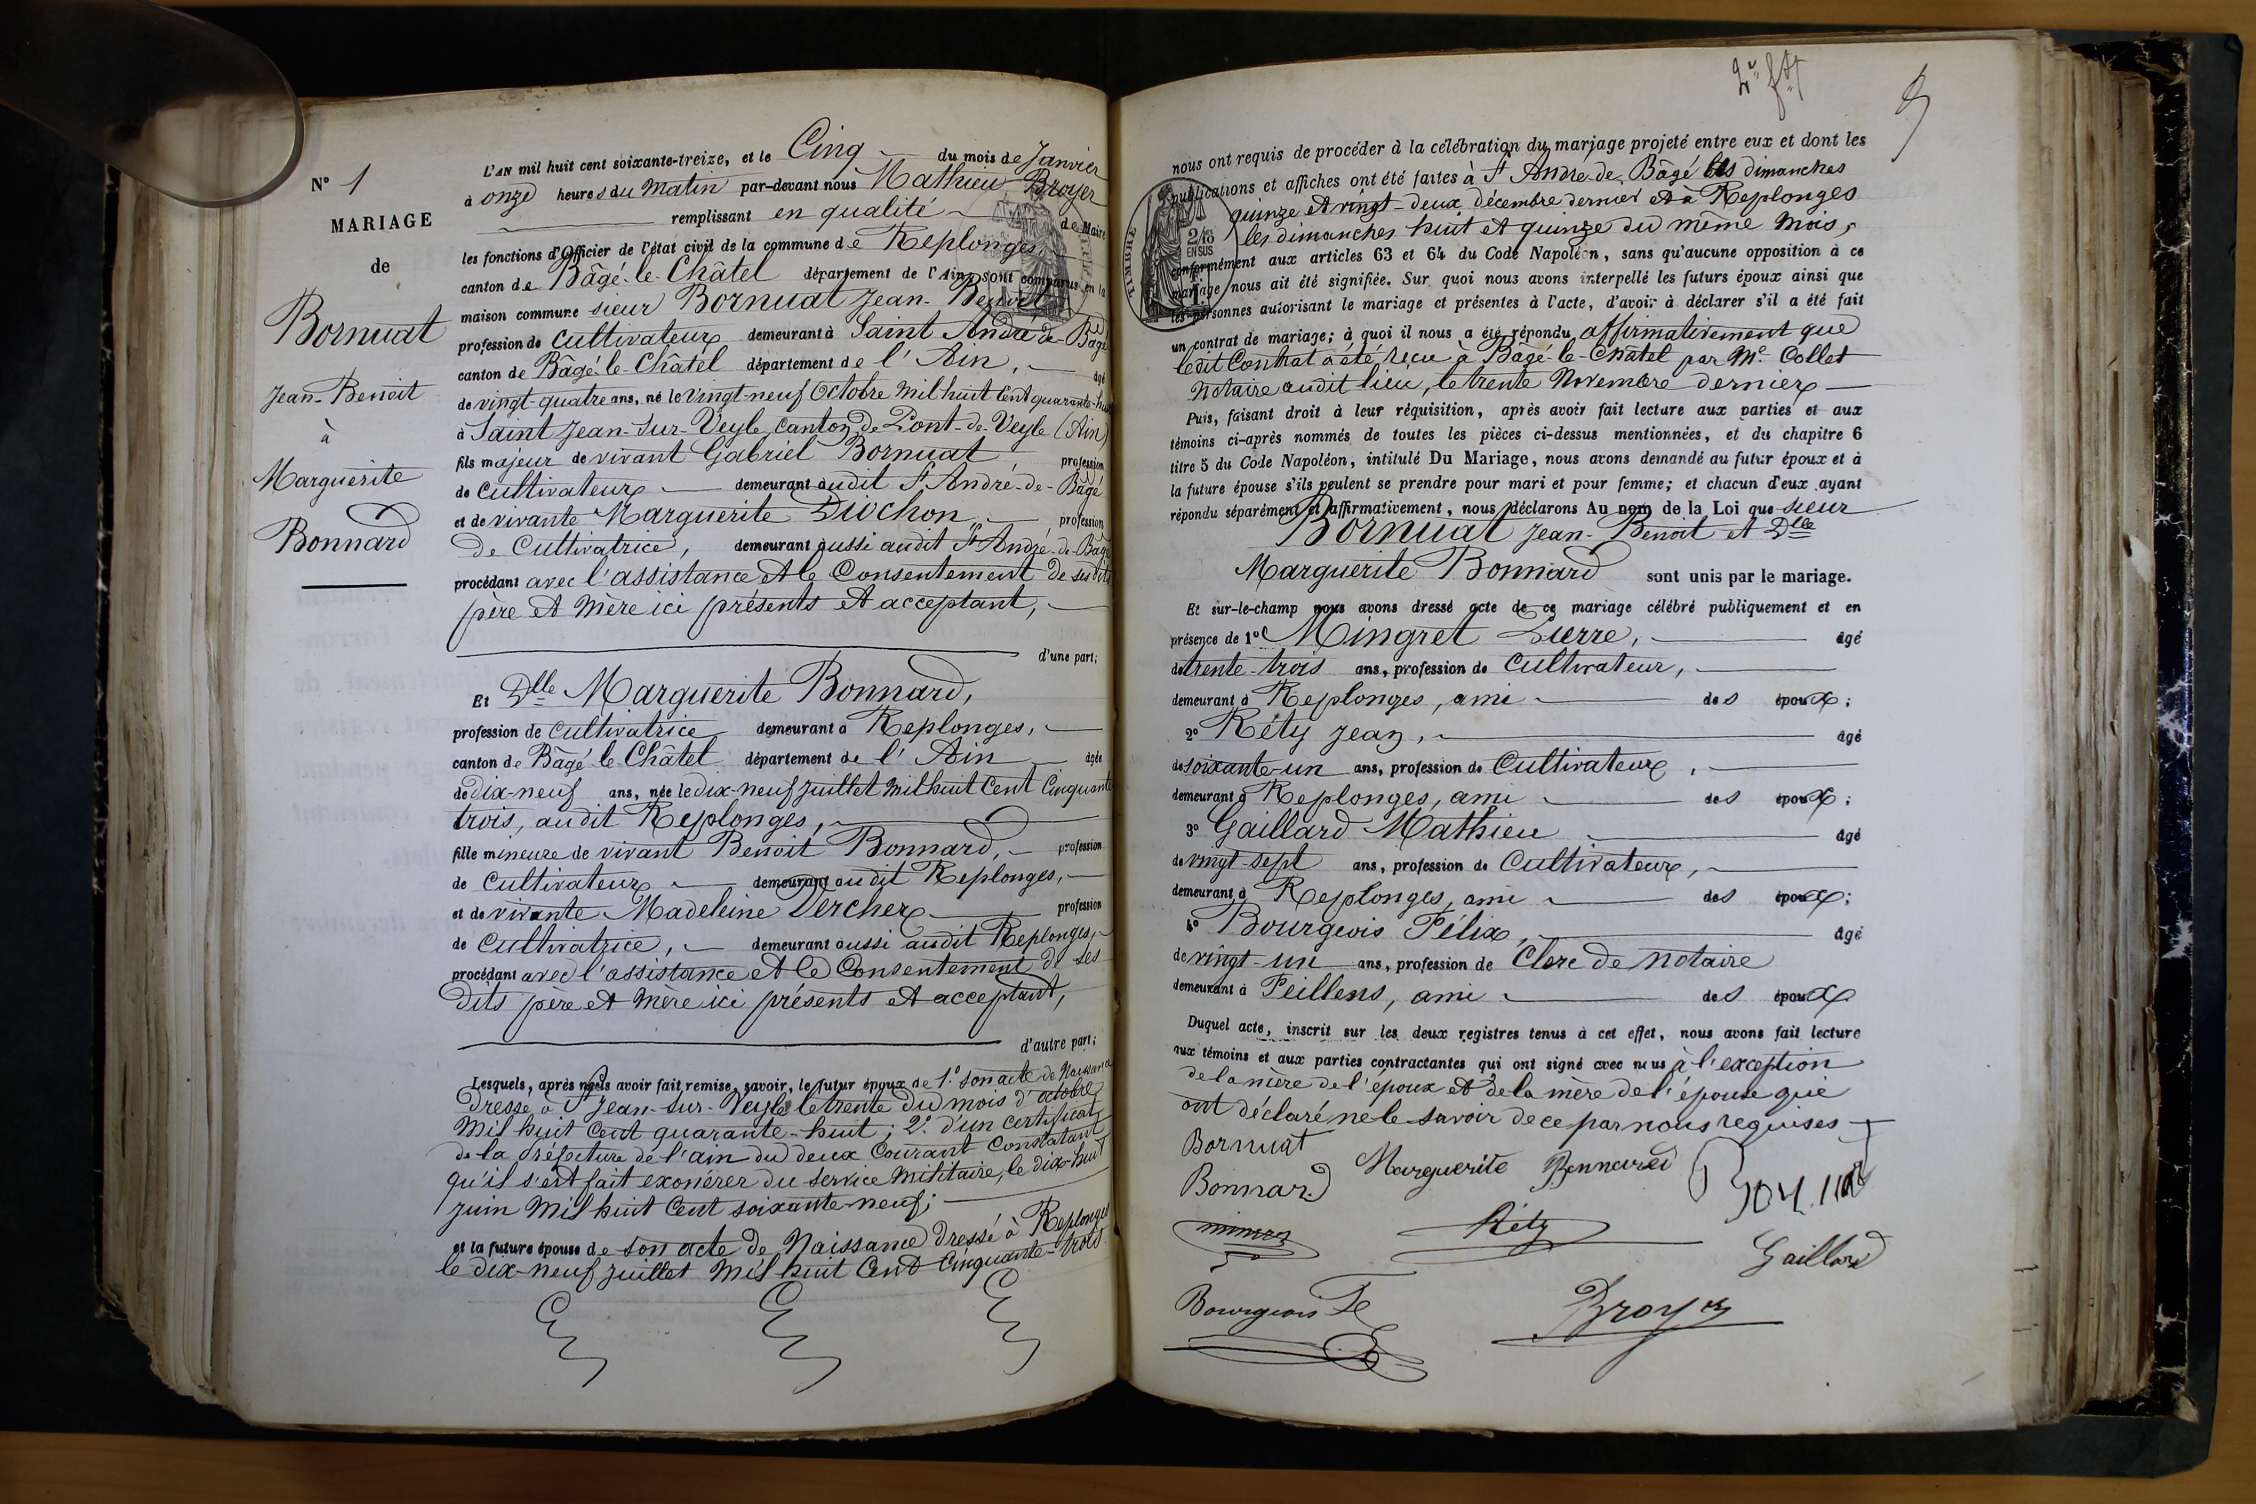 N° 1
MARIAGE
de
Bornuat
Jean-Benoit
à
Marguerite
Bonnard
L'AN mil huit cent soixante-treize, et le Cinq du mois de Janvier
à onze heures du matin par-devant nous Mathieu Broyer
remplissant en qualité de Maire
les fonctions d'Officier de l'état civil de la commune de Replonges
canton de Bâgé-le-Châtel département de l'Ain, sont comparus en la
maison commune sieur Bornuat Jean-Benoit
profession de cultivateur demeurant à Saint André-de-Bâgé
canton de Bâgé-le-Châtel département de l'Ain, âgé
de vingt-quatre ans, né le vingt-neuf Octobre mil huit cent quarante-huit
à Saint Jean-sur-Veyle, canton de Pont-de-Veyle (Ain)
fils majeur de vivant Gabriel Bornuat profession
de cultivateur demeurant audit St André-de-Bâgé
et de vivante Marguerite Diochon, profession
de Cultivatrice, demeurant aussi audit St André-de-Bâgé
procédant avec l'assistance et le Consentement de ses dits
père et mère ici présents et acceptant,
d'une part;
Et Dlle Marguerite Bonnard,
profession de cultivatrice demeurant à Replonges,
canton de Bâgé-le-Châtel département de l'Ain âgée
de dix-neuf ans, née le dix-neuf juillet mil huit cent cinquante
trois, audit Replonges,
fille mineure de vivant Benoit Bonnard, profession
de cultivateur demeurant audit Replonges,
et de vivante Madeleine Vercher profession
de cultivatrice, demeurant aussi audit Replonges,
procédant avec l'assistance et le Consentement de ses
dits père et mère ici présents et acceptant,
d'autre part;
Lesquels, après nous avoir fait remise, savoir, le futur époux de 1° son acte de Naissance
dressé à St Jean-sur-Veyle le trente du mois d'octobre
mil huit cent quarante-huit; 2° d'un certificat
de la Préfecture de l'ain du deux Courant Constatant
qu'il s'est fait exonérer du service militaire, le dix-huit
juin mil huit cent soixante-neuf;
et la future épouse de son acte de Naissance dressé à Replonges
le dix-neuf juillet mil huit cent cinquante-trois
nous ont requis de procéder à la célébration du mariage projeté entre eux et dont les
publications et affiches ont été faites à St André-de-Bâgé les dimanches
quinze et vingt-deux décembre dernier et à Replonges
les dimanches huit et quinze du même mois,
conformément aux articles 63 et 64 du Code Napoléon, sans qu'aucune opposition à ce
mariage nous ait été signifiée. Sur quoi nous avons interpellé les futurs époux ainsi que
les personnes autorisant le mariage et présentes à l'acte, d'avoir à déclarer s'il a été fait
un contrat de mariage; à quoi il nous a été répondu affirmativement que
ledit Contrat a été recu à Bâgé-le-Châtel par Me Collet
Notaire audit lieu, le trente Novembre dernier
Puis, faisant droit à leur réquisition, après avoir fait lecture aux parties et aux
témoins ci-après nommés de toutes les pièces ci-dessus mentionnées, et du chapitre 6
titre 5 du Code Napoléon, intitulé Du Mariage, nous avons demandé au futur époux et à
la future épouse s'ils veulent se prendre pour mari et pour femme; et chacun d'eux ayant
répondu séparément et affirmativement, nous déclarons Au nom de la Loi que sieur
Bornuat Jean-Benoit et Dlle
Marguerite Bonnard sont unis par le mariage.
Et sur-le-champ nous avons dressé acte de ce mariage célébré publiquement et en
présence de 1° Mingret Pierre, âgé
de trente-trois ans, profession de cultivateur,
demeurant à Replonges, ami des époux;
2° Réty Jean, âgé
de soixante-un ans, profession de Cultivateur,
demeurant à Replonges, ami des époux;
3° Gaillard Mathieu âgé
de vingt-sept ans, profession de Cultivateur,
demeurant à Replonges, ami des époux;
4° Bourgeois Félix, âgé
de vingt-un ans, profession de Clerc de notaire
demeurant à Feillens, ami des époux
Duquel acte, inscrit sur les deux registres tenus à cet effet, nous avons fait lecture
aux témoins et aux parties contractantes qui ont signé avec nous à l'exception
de la mère de l'époux et de la mère de l'épouse qui
ont déclaré ne le savoir de ce par nous requises
Bornuat
Bonnard
Marguerite Bonnard
Réty
Gaillard
Bourgeois Fe
Broyer
TIMBRE
2/10
EN SUS